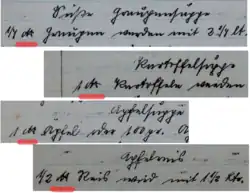 Süße Graupensuppe
1/4 ℔ Graupen werden mit 3 1/4 lt.
Kartoffelsuppe
1 ℔ Kartoffeln werden
Apfelsuppe
1 ℔ Äpfel oder 100 gr.
Apfelreis
1/2 ℔ Reis wird mit 1 1/2 Ltr.